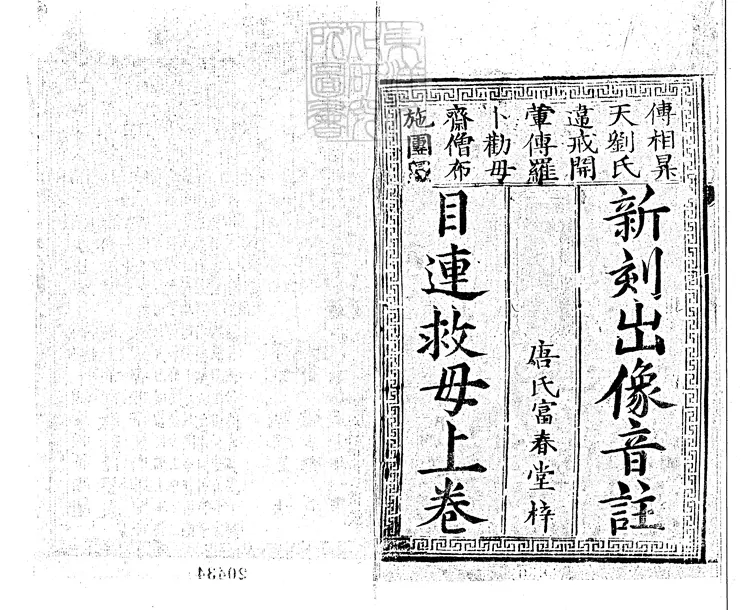 傳相昇
天劉氏
違戒開
葷傳羅
卜勸母
齋僧布
施團圓
新刻出像音註
唐氏富春堂梓
目連救母上卷
20434